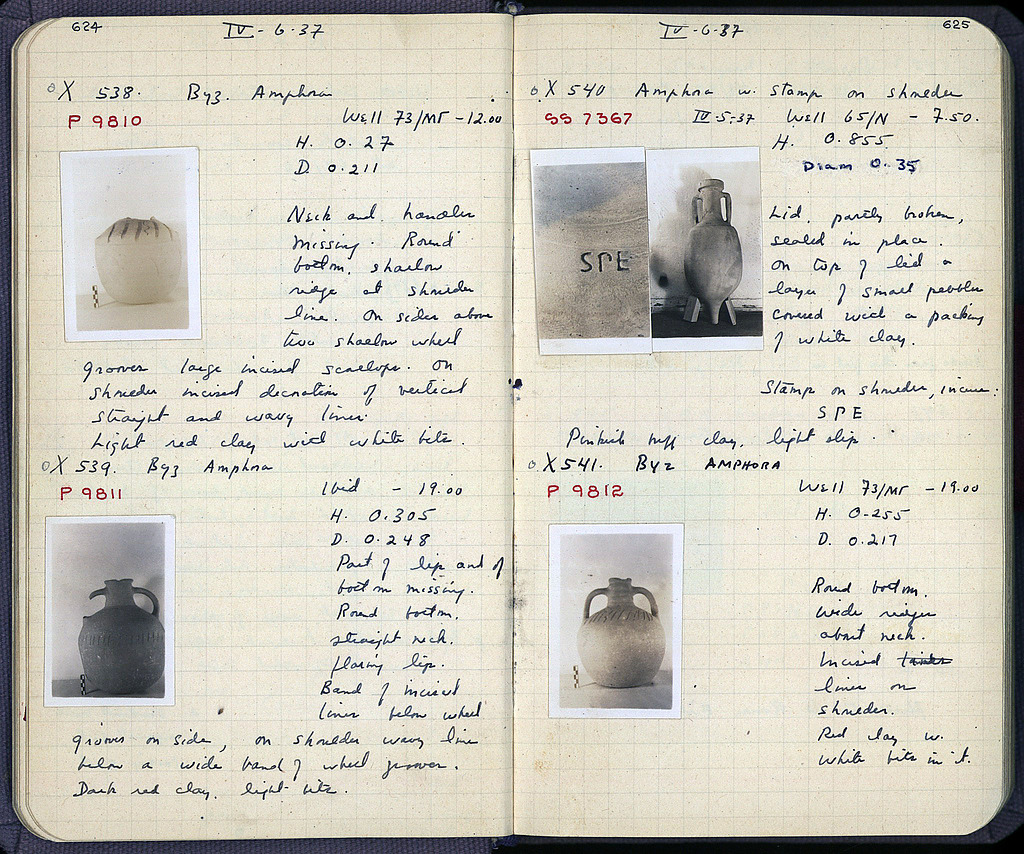 624
IV - 6 - 37
X 538. Byz. Amphora
P 9810
Well 73/MΓ - 12.00
H. 0.27
D. 0.211
Neck and handles
missing. Round
bottom, shallow
ridge at shoulder
line. On sides above
two shallow wheel
grooves large incised scallops. On
shoulder incised decoration of vertical
straight and wavy lines.
Light red clay with white bits.
X 539. Byz Amphora
P 9811
Ibid - 19.00
H. 0.305
D. 0.248
Part of lip and of
bottom missing.
Round bottom.
straight neck.
flaring lip.
Band of incised
lines below wheel
grooves on side, on shoulder wavy line
below a wide band of wheel grooves.
Dark red clay, light bits.
625
IV - 6 - 37
X 540 Amphora w. stamp on shoulder
SS 7367
IV-5-37 Well 65/N - 7.50.
H. 0.855
Diam 0.35
SPE
Lid, partly broken,
sealed in place.
On top of lid a
layer of small pebbles
covered with a packing
of white clay.
Stamp on shoulder, incuse:
SPE
Pinkish buff clay, light slip.
X 541. Byz AMPHORA
P 9812
Well 73/MΓ - 19.00
H. 0.255
D. 0.217
Round bottom.
Wide ridges
about neck.
Incised
lines on
shoulder.
Red clay w.
white bits in it.